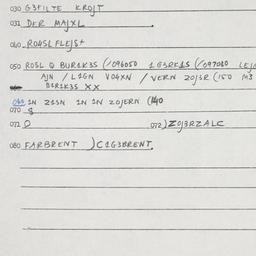 030 G3FILTE KROJT
031 DER MAJXL
040 ROHSLFLEJSt
050 ROSL Q BUR1K3S (1096050 1G3RE1S (1097080 LEJG
AJN / L1GN VOHXN / VERN 20J3R (150 M3
B1R1K3S XX
060 1N 21SN 1N 1N 20JERN (140
070 8
071 0 072) Z0J3RZALC
080 FARBRENT )C1G3BRENT.